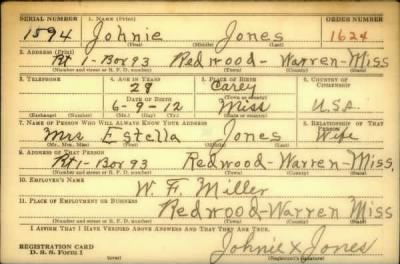 SERIAL NUMBER 1. NAME (Print) ORDER NUMBER
1594 Johnie Jones 1624
(First) (Middle) (Last)
2. ADDRESS (Print)
Rt 1-Box 93 Redwood-Warren-Miss
(Number and street or R. F. D. number) (Town) (County) (State)
3. TELEPHONE 4. AGE IN YEARS 5. PLACE OF BIRTH 6. COUNTRY OF CITIZENSHIP
28 Carey
DATE OF BIRTH (Town or county)
6-9-12 Miss U.S.A.
(Exchange) (Number) (Mo.) (Day) (Yr.) (State or country)
7. NAME OF PERSON WHO WILL ALWAYS KNOW YOUR ADDRESS 8. RELATIONSHIP OF THAT PERSON
Mrs Estella Jones Wife
(Mr., Mrs., Miss) (First) (Middle) (Last)
9. ADDRESS OF THAT PERSON
Rt 1-Box 93 Redwood-Warren-Miss.
(Number and street or R. F. D. number) (Town) (County) (State)
10. EMPLOYER'S NAME
W. F. Miller
11. PLACE OF EMPLOYMENT OR BUSINESS
Redwood-Warren Miss
(Number and street or R. F. D. number) (Town) (County) (State)
I AFFIRM THAT I HAVE VERIFIED ABOVE ANSWERS AND THAT THEY ARE TRUE.
REGISTRATION CARD Johnie X Jones
D. S. S. Form 1 (over) (Registrant's signature)